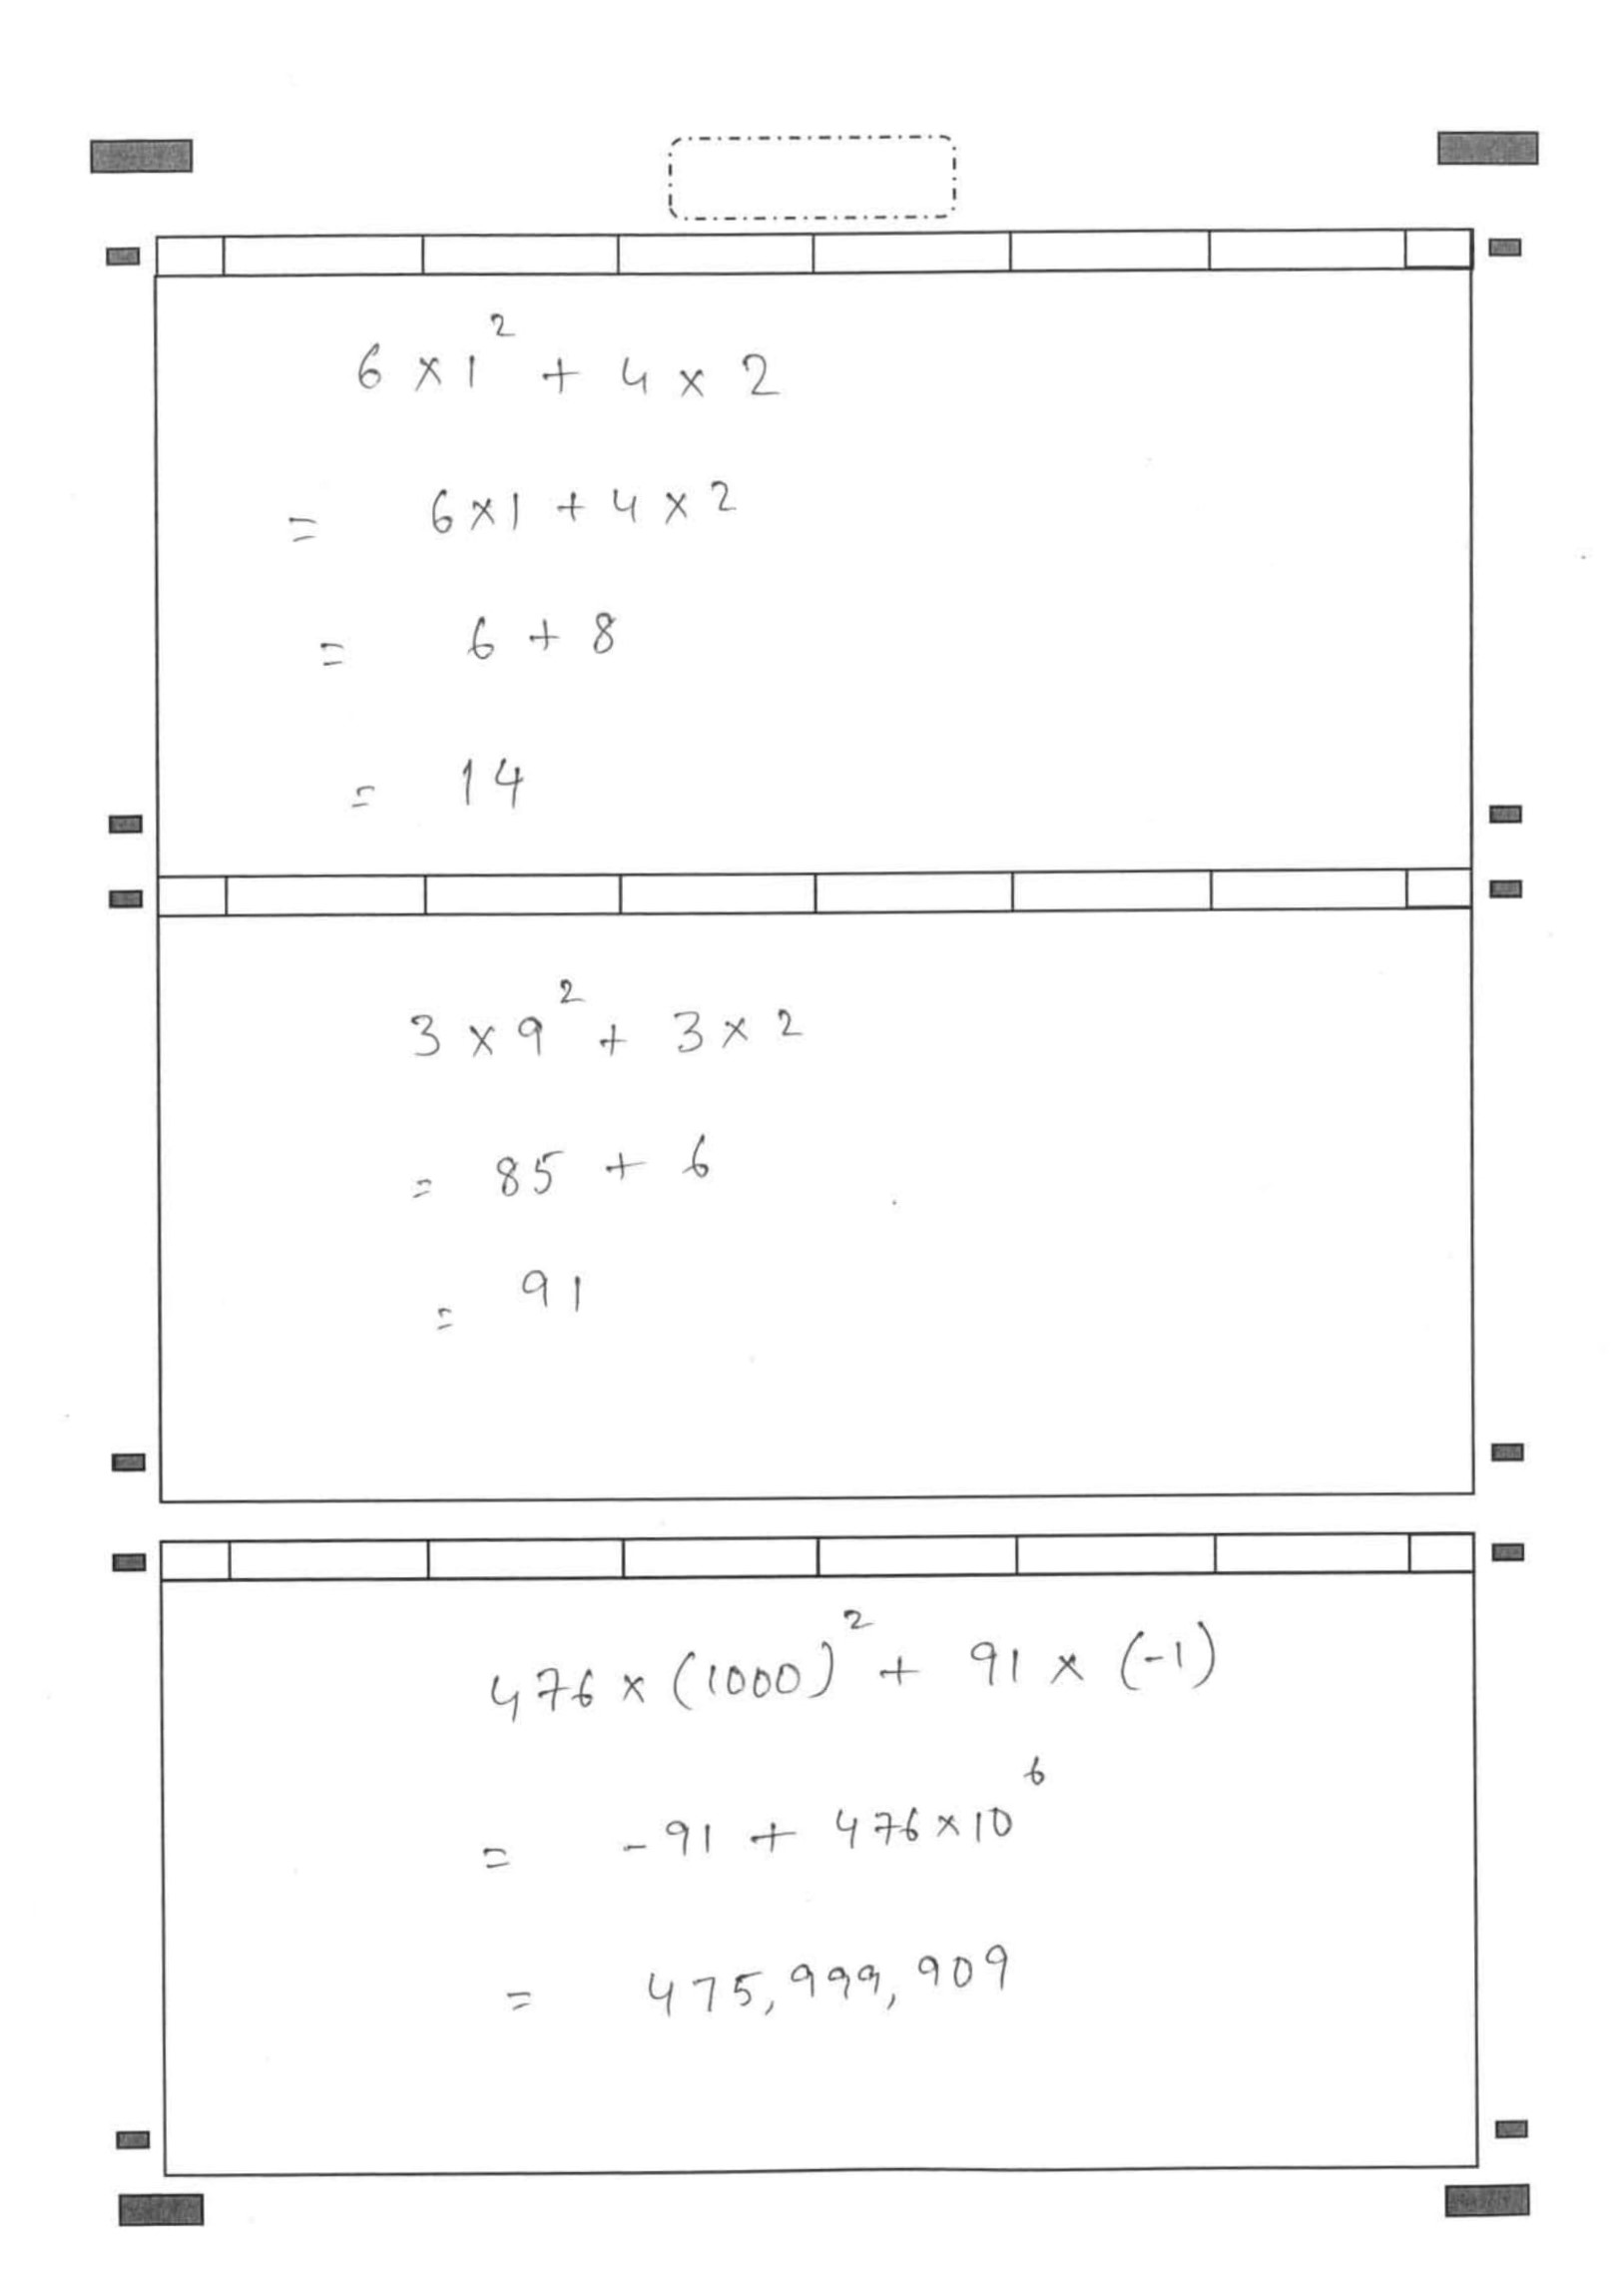 6 × 1² + 4 × 2
= 6 × 1 + 4 × 2
= 6 + 8
= 14
3 × 9² + 3 × 2
= 85 + 6
= 91
476 × (1000)² + 91 × (-1)
= -91 + 476 × 10⁶
= 475,999,909